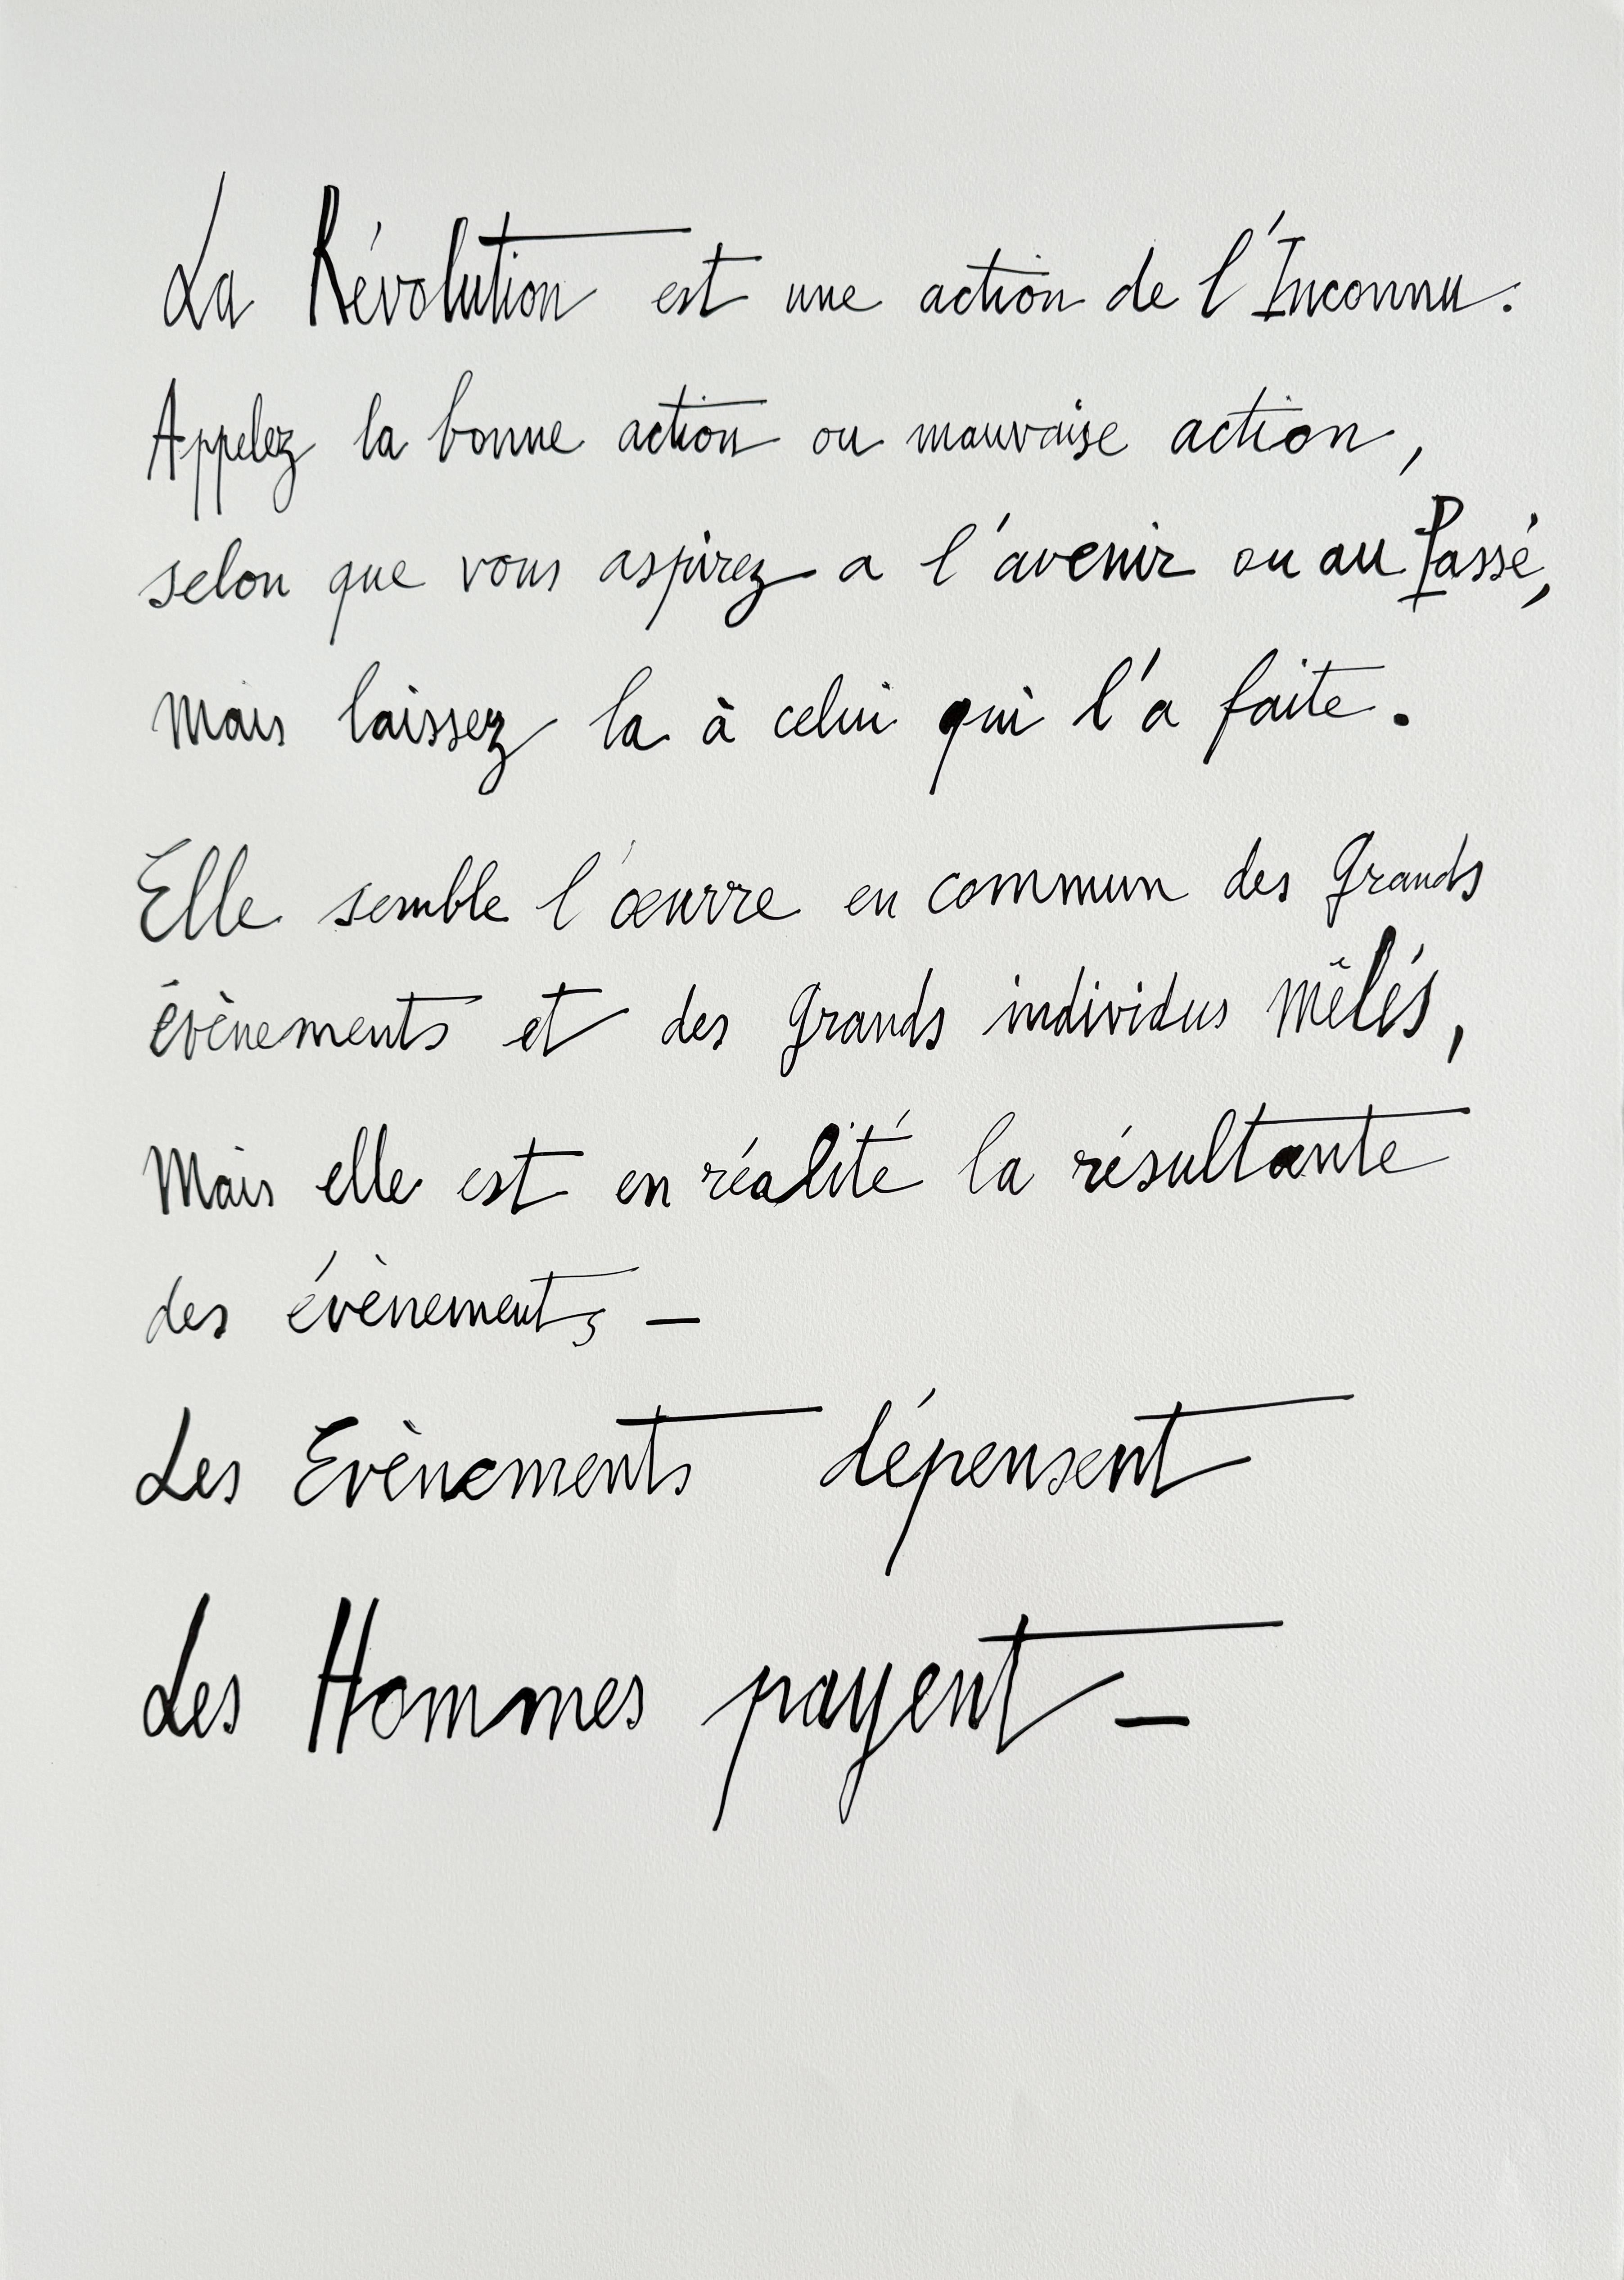 La Révolution est une action de l'Inconnu.
Appelez la bonne action ou mauvaise action,
selon que vous aspirez a l'avenir ou au Passé,
Mais laissez la à celui qui l'a faite.
Elle semble l'œuvre en commun des grands
évènements et des grands individus mêlés,
Mais elle est en réalité la résultante
des évènements –
Les Evènements dépensent
Les Hommes payent –